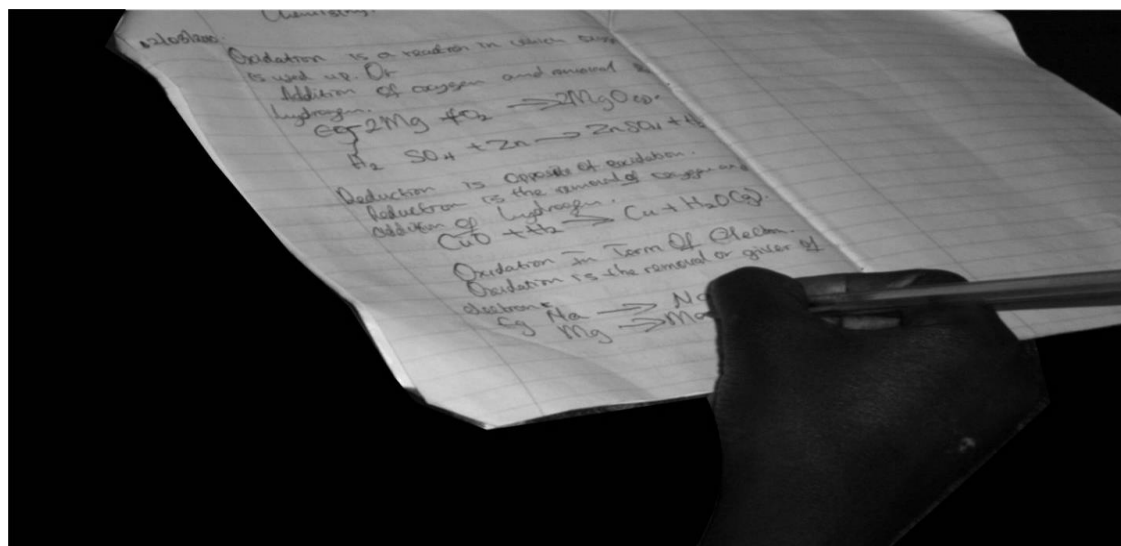 Chemistry.
Oxidation is a reaction in which
is used up. Or
Addition of oxygen and removal
hydrogen.
Eg 2Mg + O2 → 2MgO
H2 SO4 + Zn → ZnSO4 + H2
Reduction is opposite of oxidation.
Reduction is the removal of oxygen and
addition of hydrogen.
CuO + H2 → Cu + H2O(g).
Oxidation in Term Of Electron.
Oxidation is the removal or giver of
electrons
Eg Na → Na
Mg →